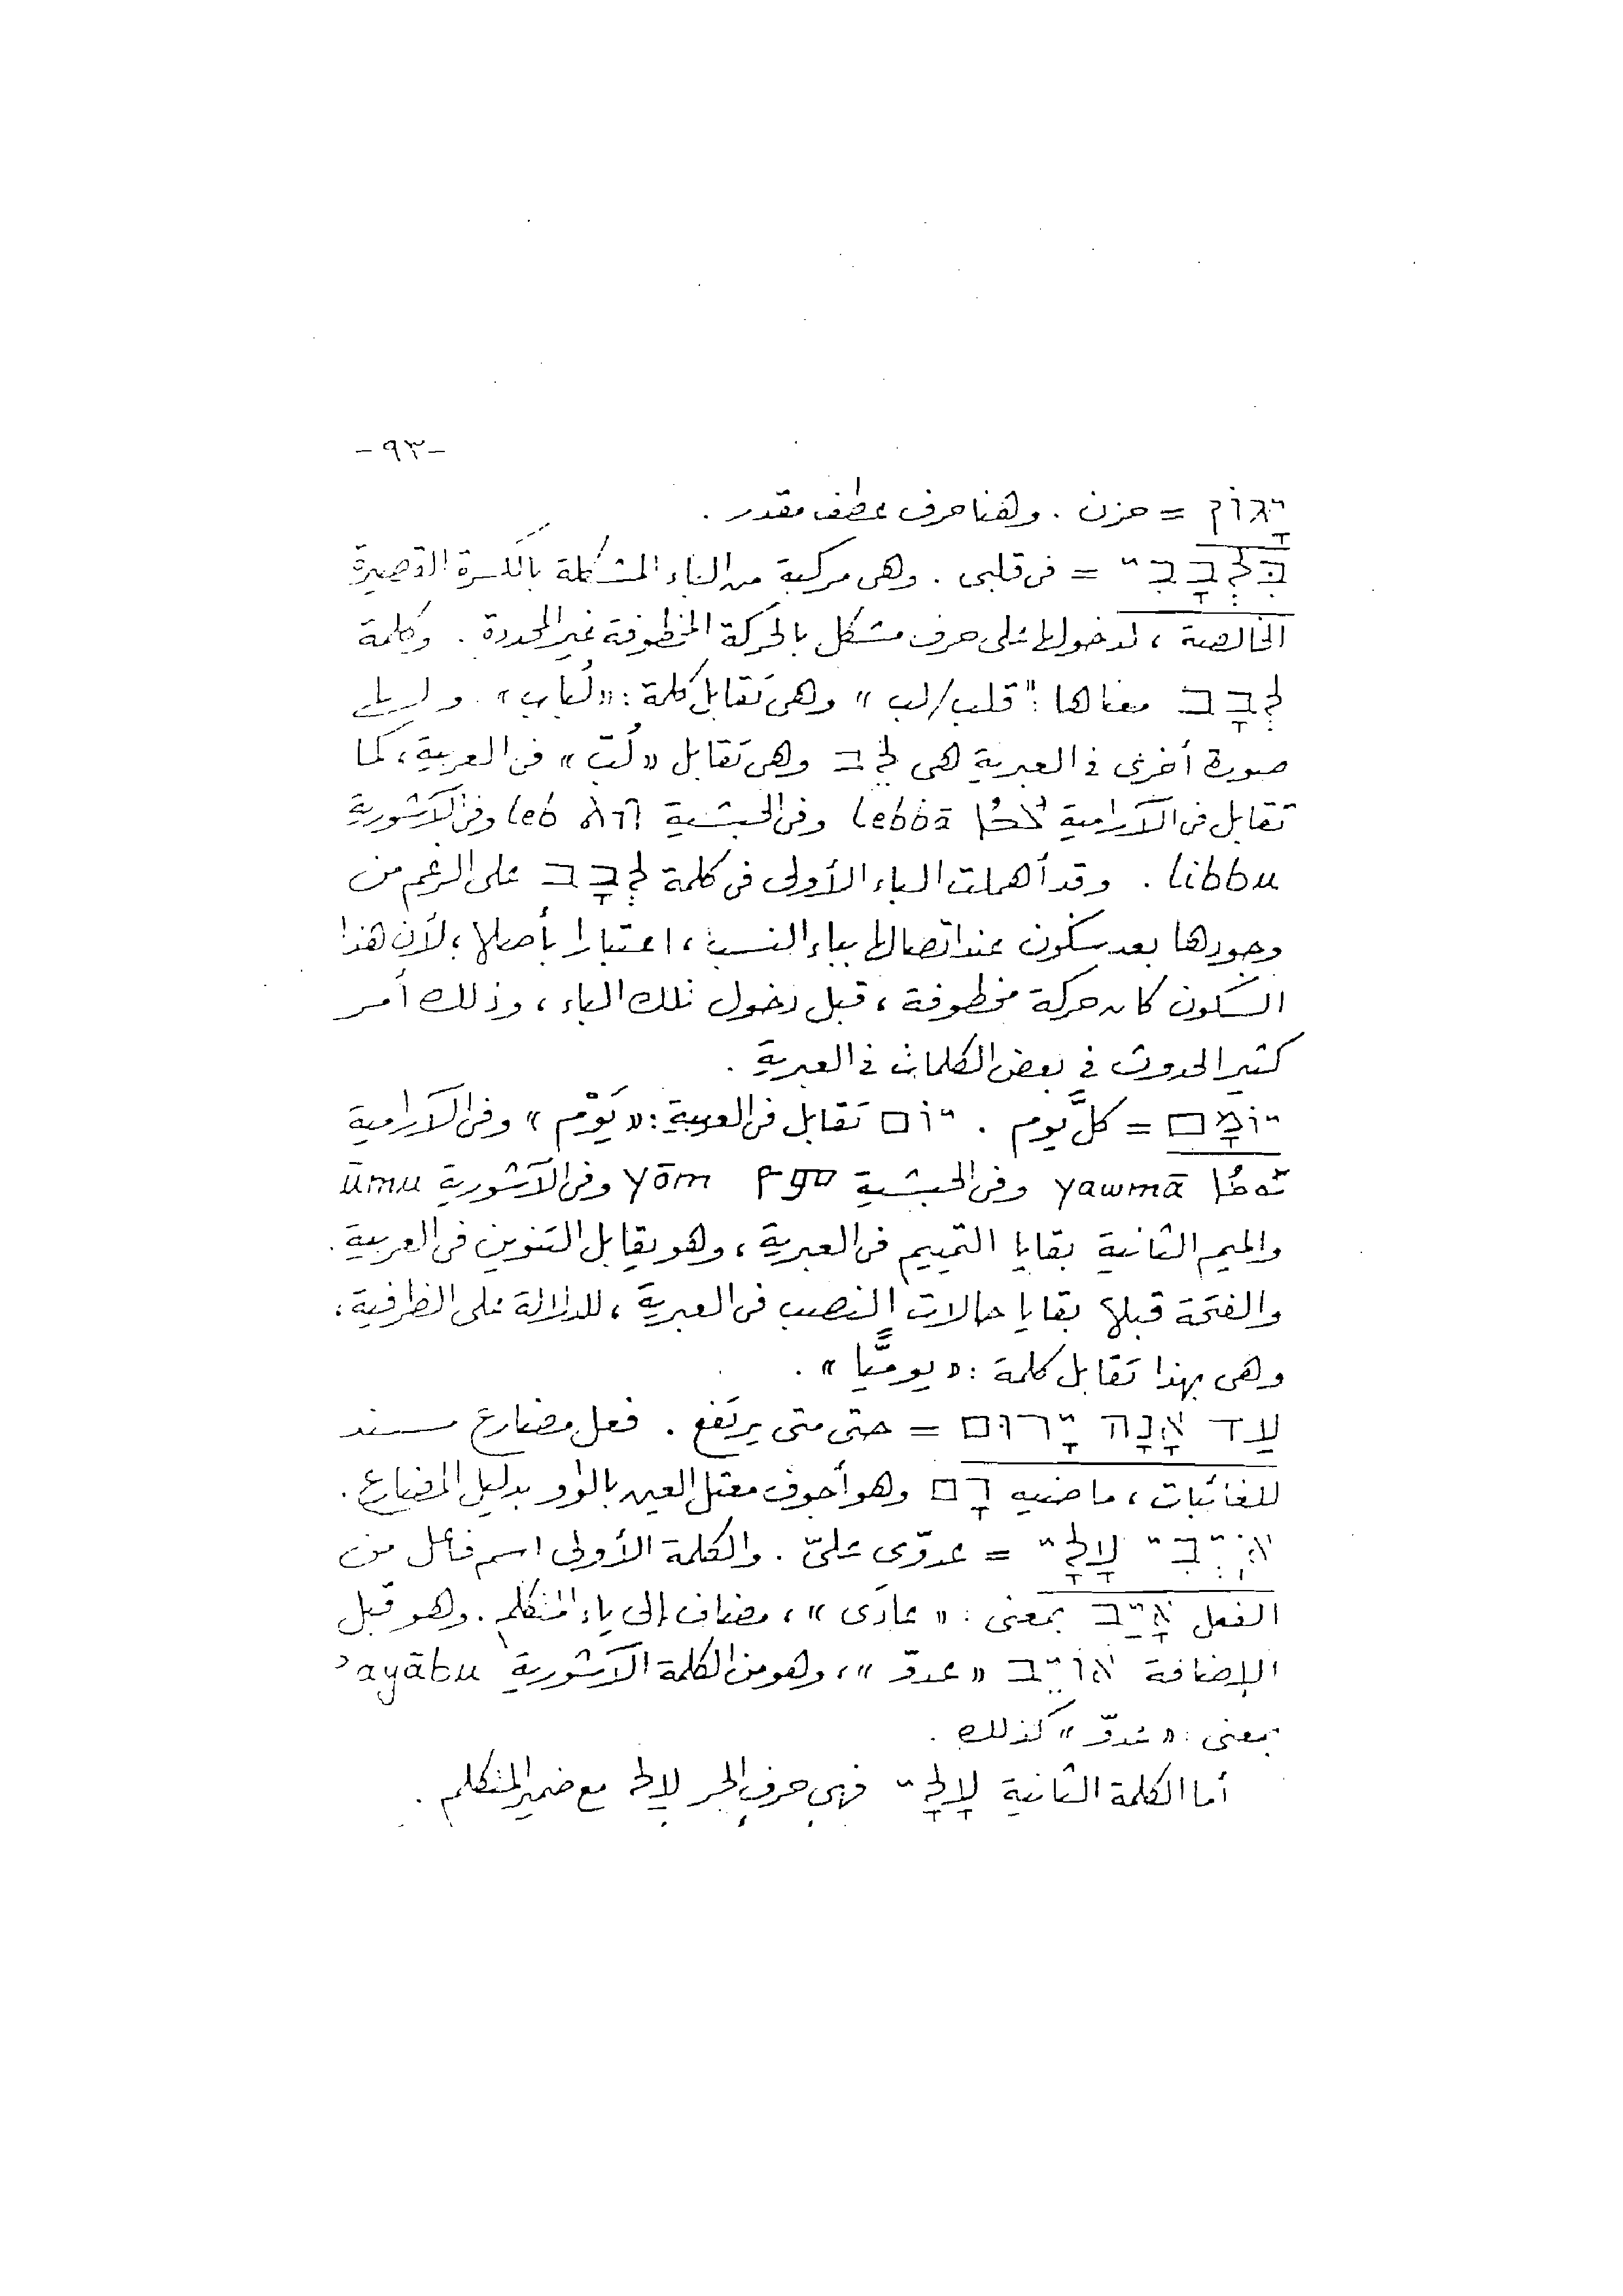 -٩٣-
יָגוֹן = حزن . وهنا حرف عطف مقدر .
בִּלְבָבִי = فى قلبى . وهى مركبة من الباء المشكلة بالكسرة القصيرة
الخالصة ، لدخولها على حرف مشكل بالحركة المخطوفة غير المحددة . وكلمة
לְבָב معناها : " قلب/لب " وهى تقابل كلمة : « لُباب » . و
صورة أخرى فى العبرية هى לֵב وهى تقابل « لُبّ » فى العربية ، كما
تقابل فى الآرامية ܠܒܐ lebbā وفى الحبشية ልብ leb وفى الآشورية
libbu . وقد أهملت الباء الأولى فى كلمة לְבָב على الرغم من
وجودها بعد سكون عند اتصالها بياء النسب ، اعتبارا بأصلها ، لأن هذا
السكون كان حركة مخطوفة ، قبل دخول تلك الباء ، وذلك أمر
كثير الحدوث فى بعض الكلمات فى العبرية .
יוֹמָם = كلَّ يوم . יוֹם تقابل فى العربية : « يَوْم » وفى الآرامية
ܝܘܡܐ yawmā وفى الحبشية ዮም yōm وفى الآشورية ūmu
والميم الثانية بقايا التمييم فى العبرية ، وهو يقابل التنوين فى العربية .
والفتحة قبلها بقايا حالات النصب فى العبرية ، للدلالة على الظرفية ،
وهى بهذا تقابل كلمة : « يوميًّا » .
עַד אָנָה יָרוּם = حتى متى يرتفع . فعل مضارع مسند
للغائبات ، ماضيه רָם وهو أجوف معتل العين بالواو بدليل المضارع .
אֹיְבִי עָלָי = عدوّى علىّ . والكلمة الأولى اسم فاعل من
الفعل אָיַב بمعنى : « عادَى » ، مضاف إلى ياء المتكلم . وهو قبل
الإضافة אוֹיֵב « عدوّ » ، وهو من الكلمة الآشورية ʾayābu
بمعنى : « عدوّ » كذلك .
أما الكلمة الثانية עָלָי فهى حرف الجر על مع ضمير المتكلم .